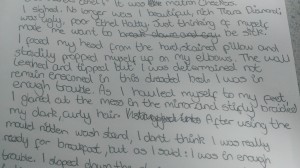 and I? It was the matron Cheston.
I sighed. No longer was I beautiful, rich Tiara Diamond. I
was ugly, poor Ethel Hotty. Just thinking of myself
made me want to break down and cry be sick.
I forced my head from the hard, stained pillow and
steadily propped myself up on my elbows. The wall
leaked and ripped but I was determined not
remain ensconced in this dreaded bed. I was in
enough trouble. As I hauled myself to my feet,
I glared at the mess in the mirror and stiffly braided
my dark, curly hair. I slopped into After using the
mould ridden wash stand, I don't think I was really
ready for breakfast, but as I said: I was in enough
trouble. I sloped down the